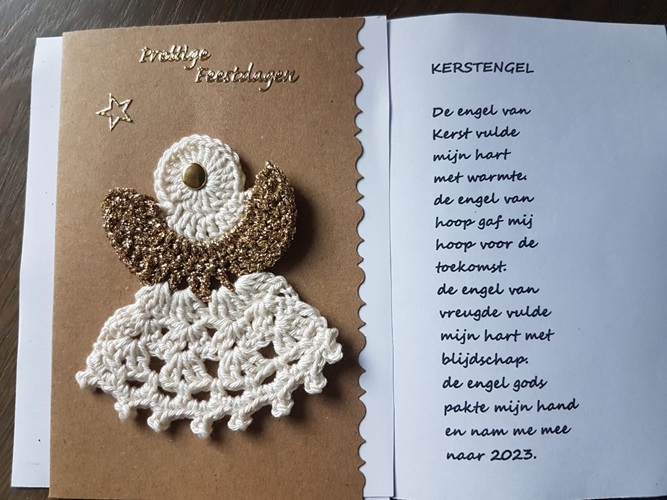 Prettige
Feestdagen
KERSTENGEL
De engel van
Kerst vulde
mijn hart
met warmte.
de engel van
hoop gaf mij
hoop voor de
toekomst.
de engel van
vreugde vulde
mijn hart met
blijdschap.
de engel gods
pakte mijn hand
en nam me mee
naar 2023.